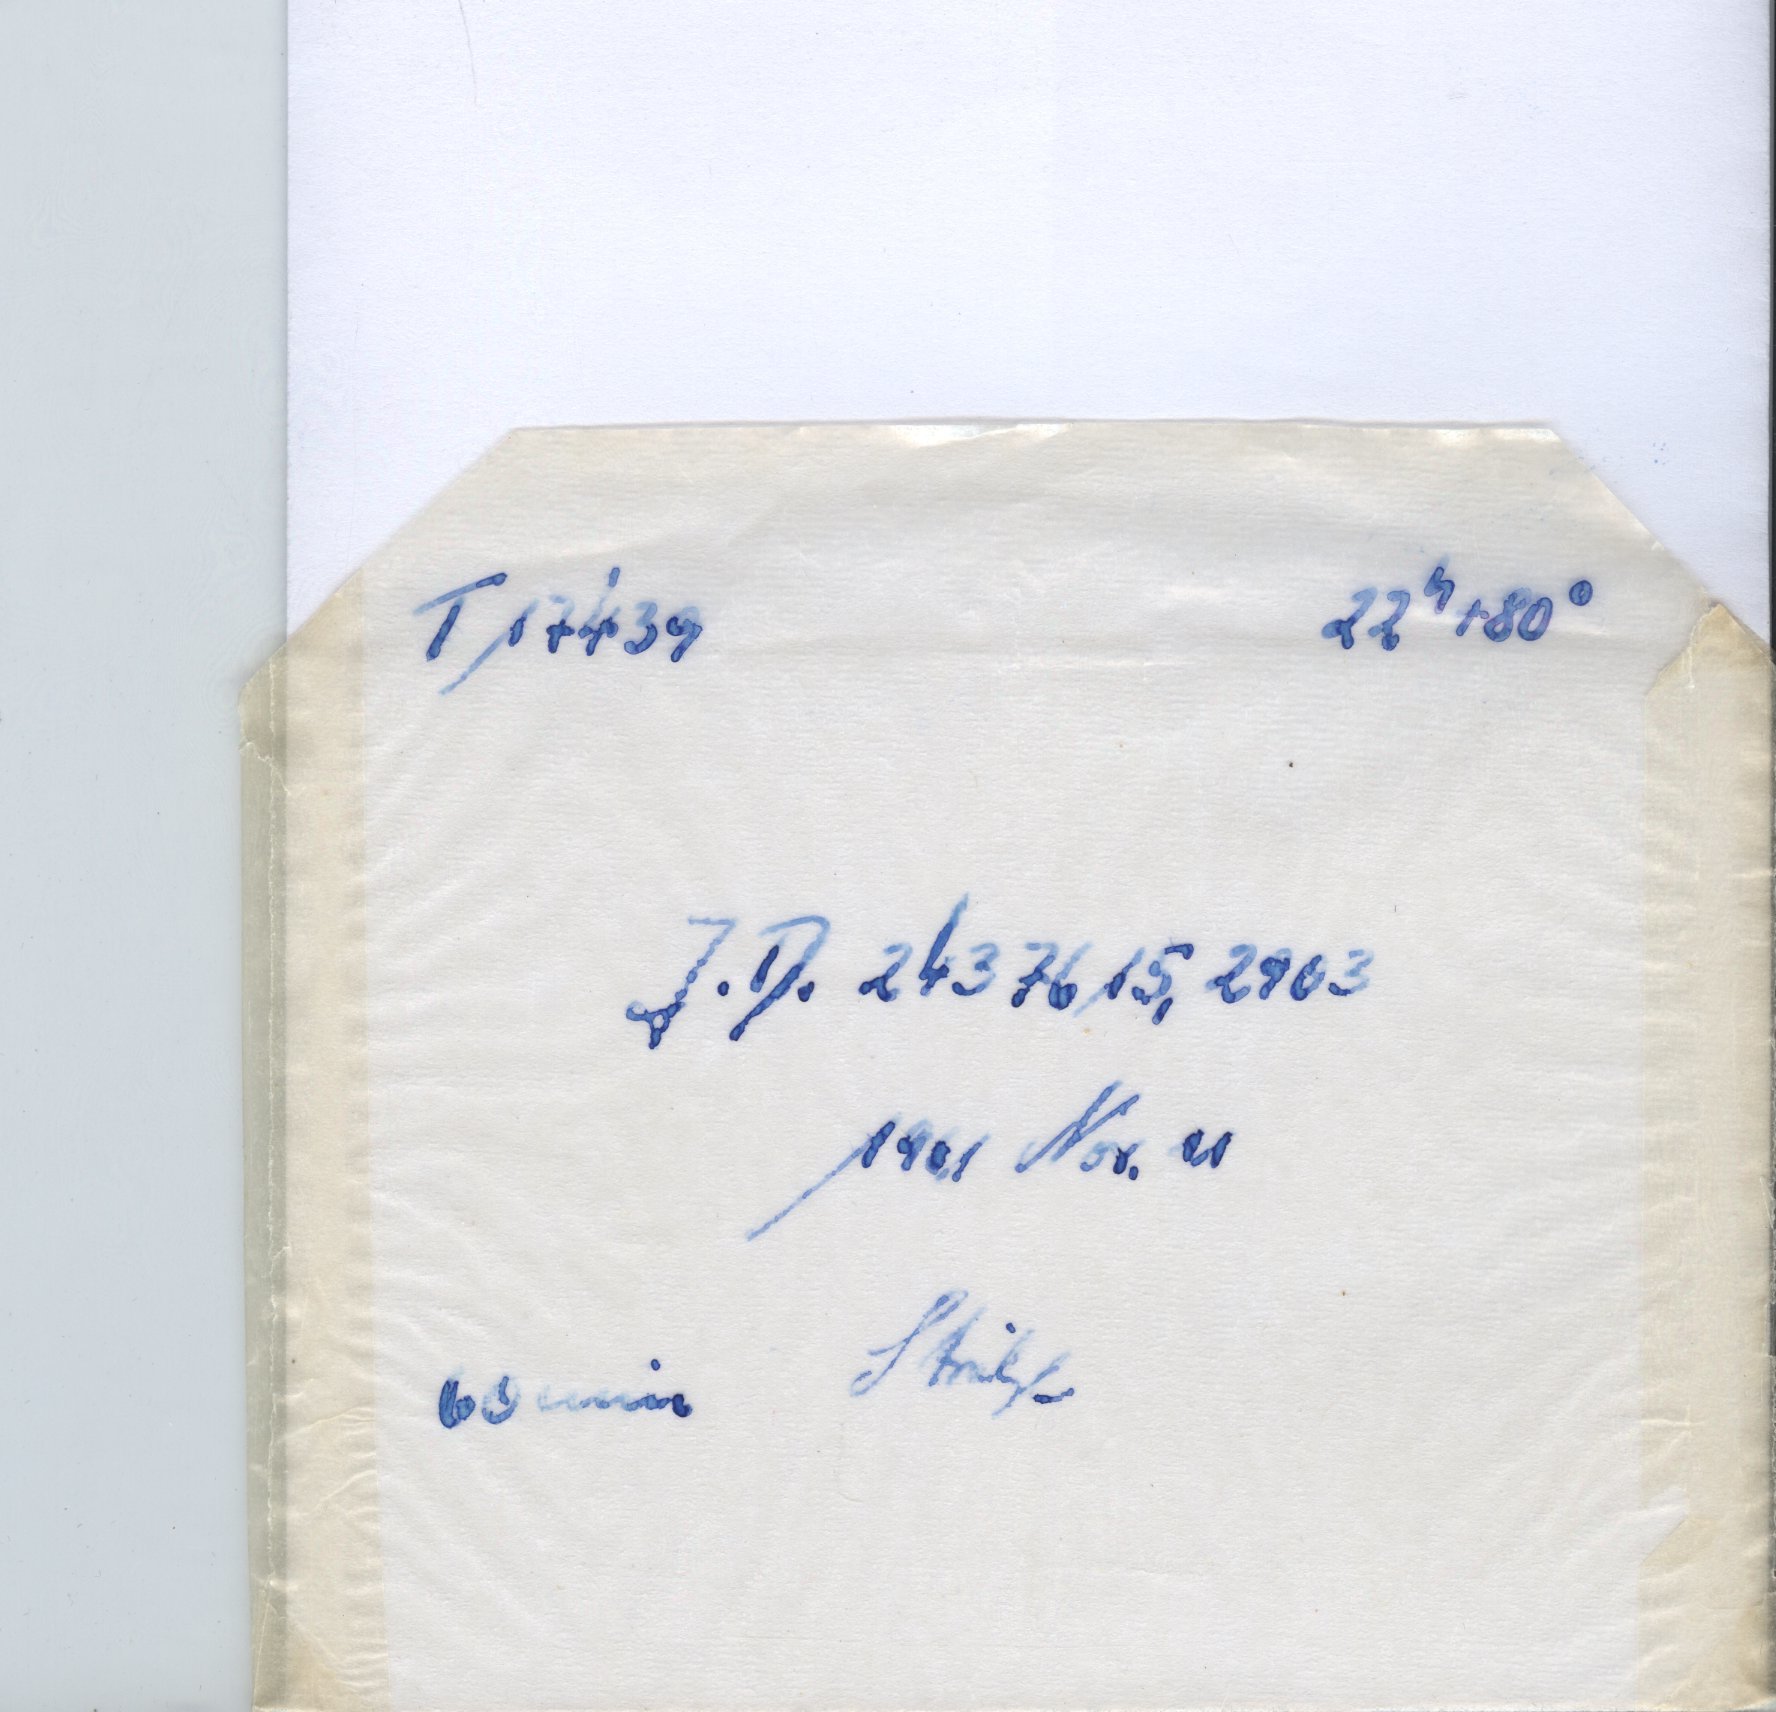 T 17439 22ʰ +80°
J.D. 2437615,2903
1961 Nov. 11
60 min